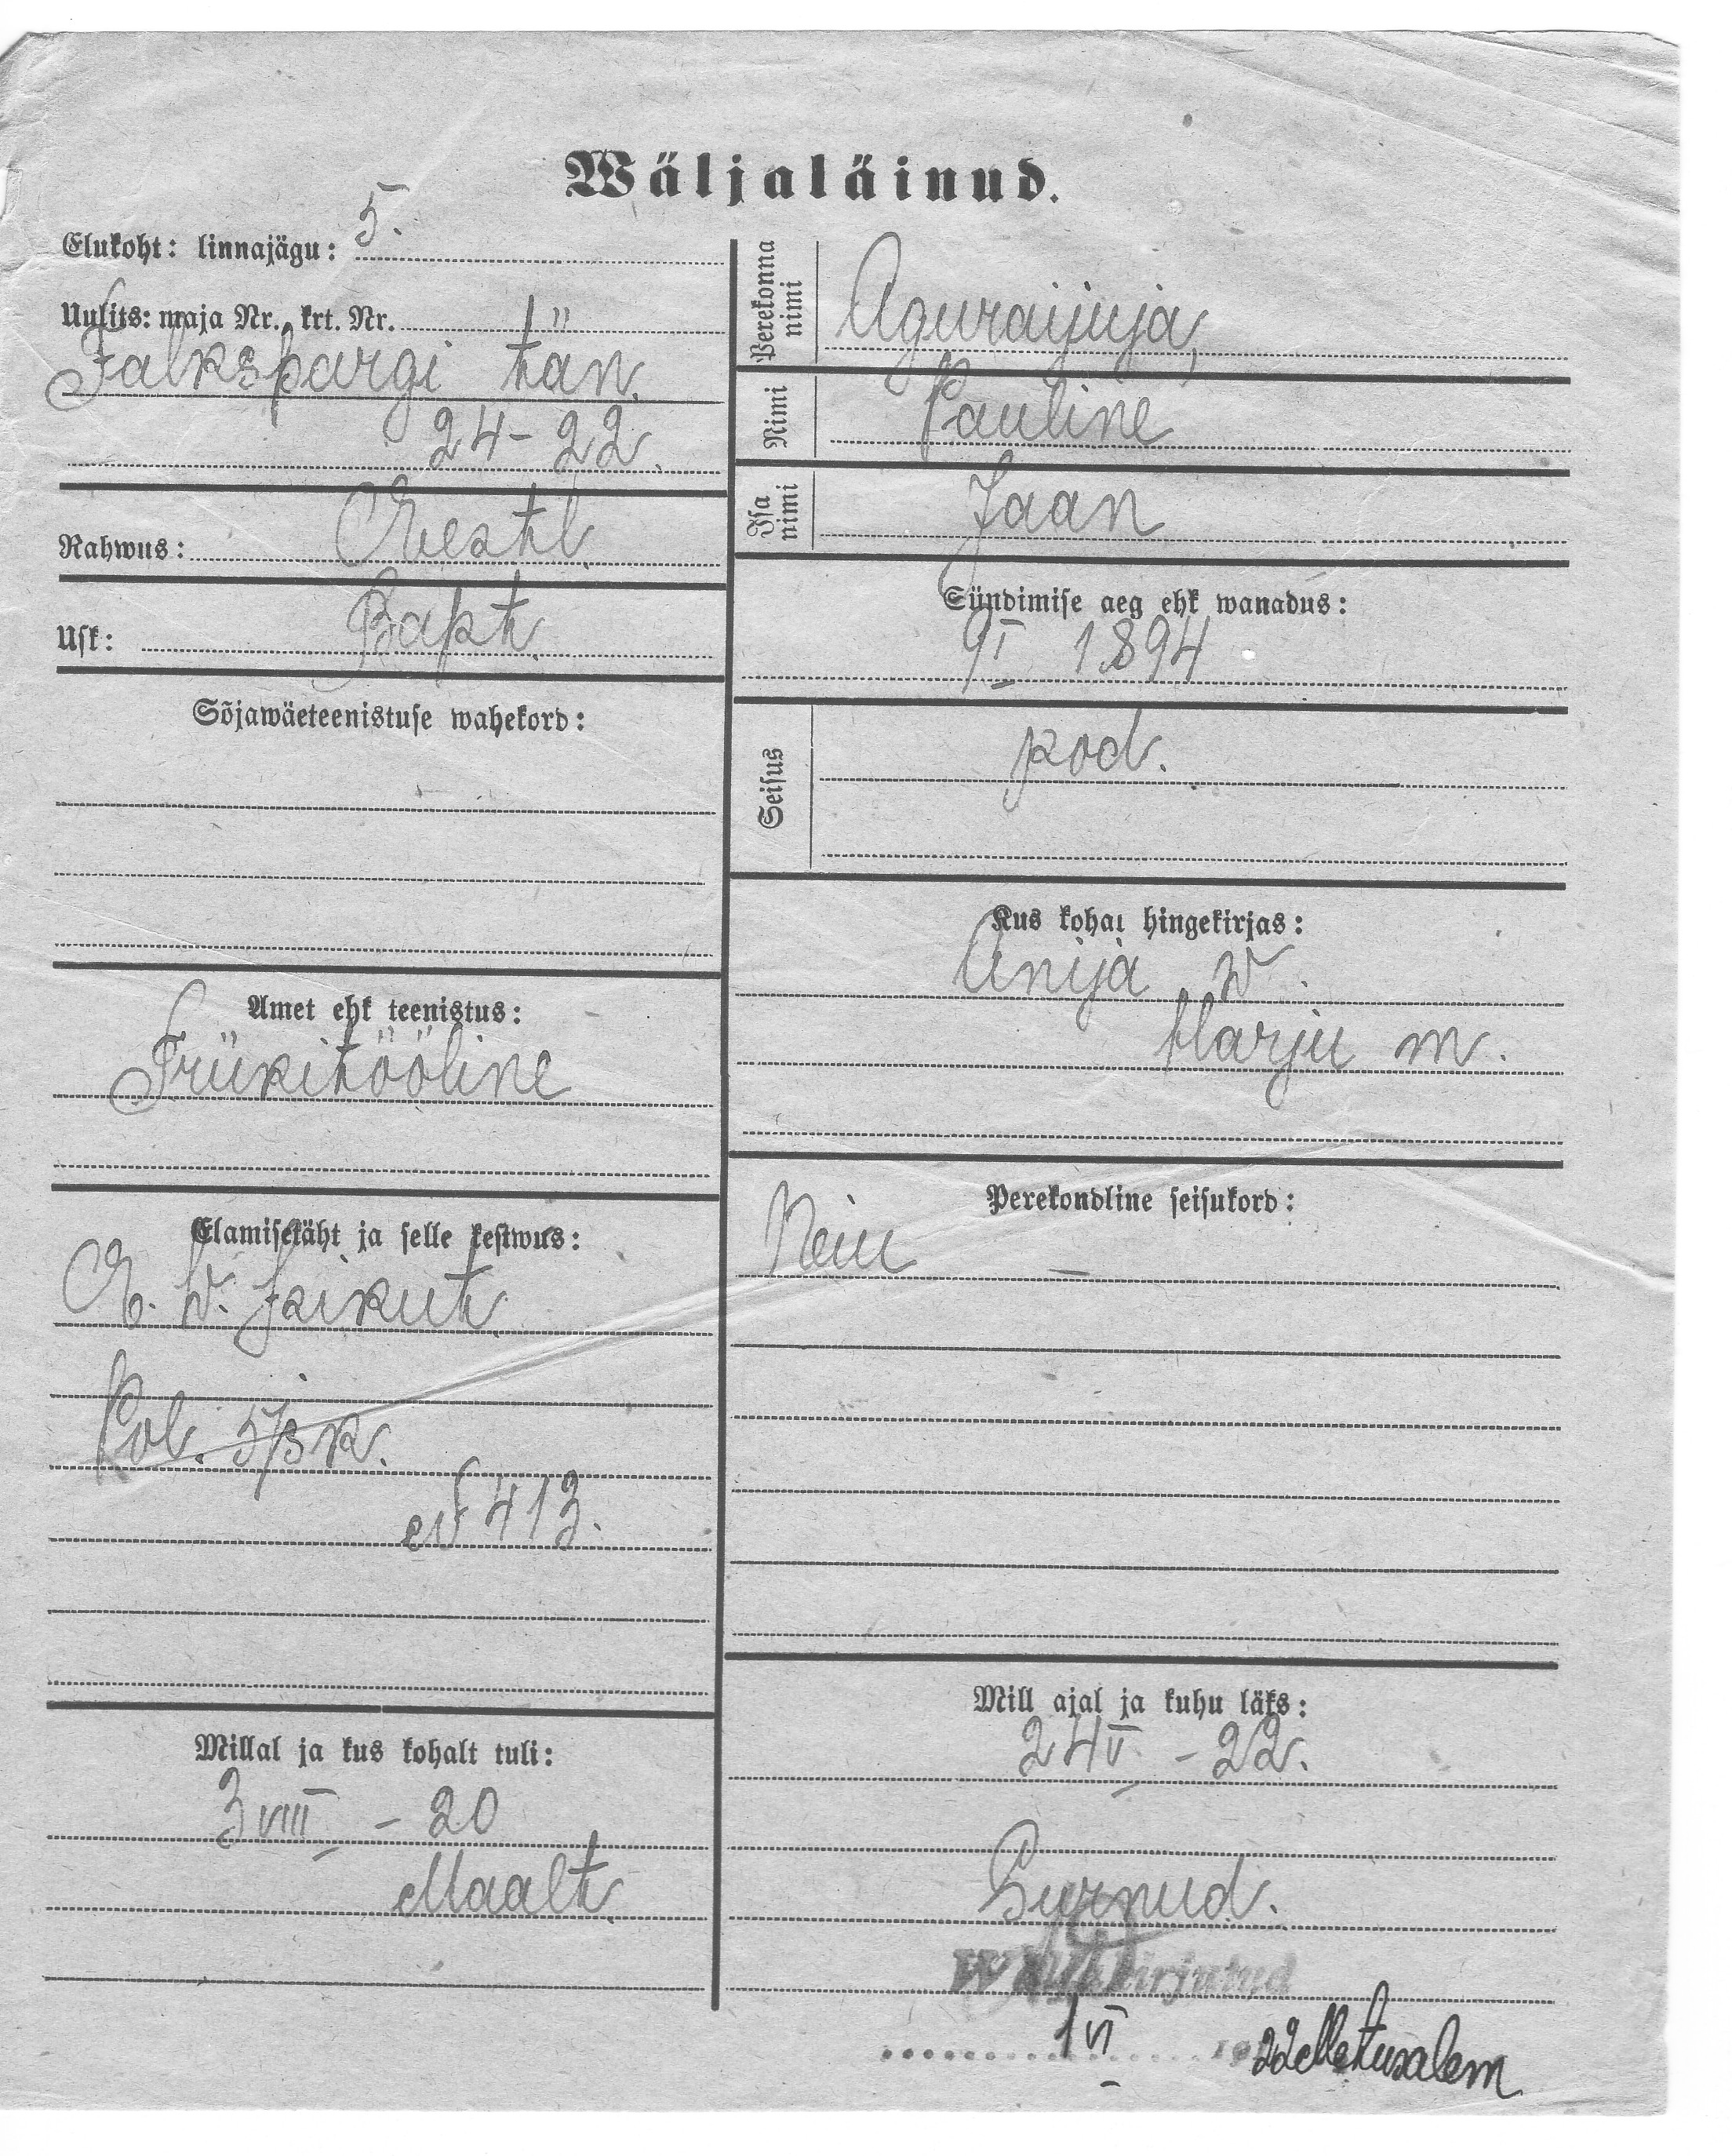 Wäljaläinud.
Elukoht: linnajägu: 5.
Uulits: maja Nr. krt. Nr.
Falkspargi tän.
24-22.
Rahwus: Eestl.
Usk: Bapt.
Sõjawäeteenistuse wahekord:
Amet ehk teenistus:
Trükitööline
Elamisetäht ja selle kestwus:
E. W. Isikut.
Pol. 5/3 k.
№ 413.
Millal ja kus kohalt tuli:
3 VIII - 20
Maalt.
Perekonna nimi
Aguraijuja,
Nimi Pauline
Isa nimi Jaan
Sündimise aeg ehk wanadus:
9 I 1894
Seisus kod.
Kus kohal hingekirjas:
Anija w.
Harju m.
Perekondline seisukord:
Neiu
Mill ajal ja kuhu läks:
24 V - 22.
Surnud.
Wäljakirjutud
1 VI 1922 Metusalem